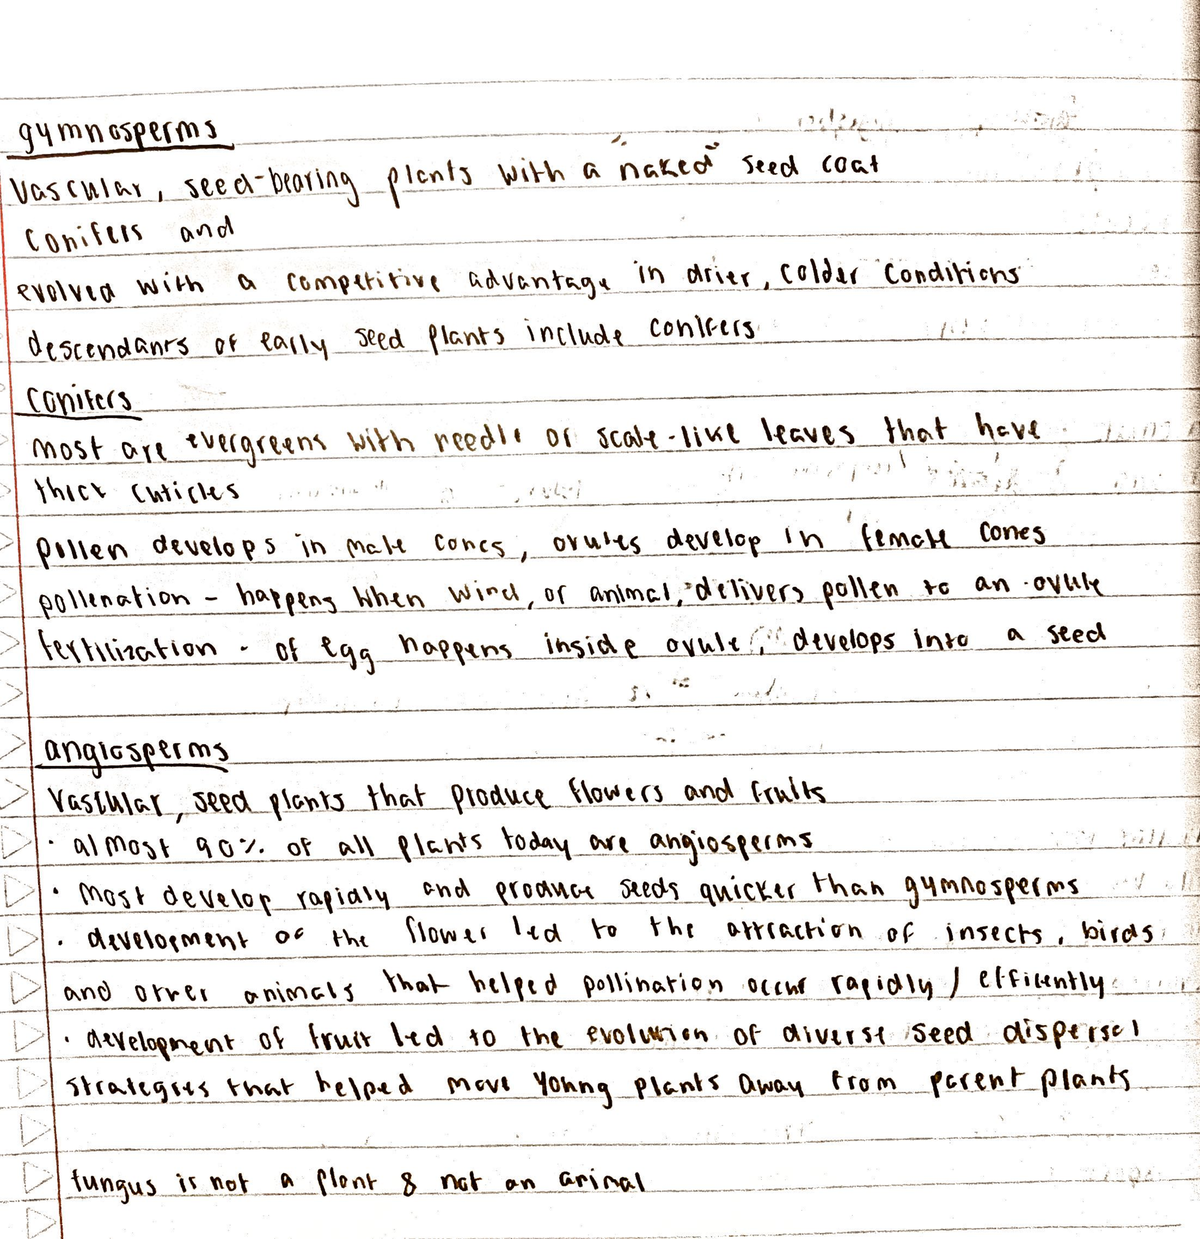 gymnosperms
vascular, seed-bearing plants with a "naked" seed coat
conifers and
evolved with a competitive advantage in drier, colder conditions
descendants of early seed plants include conifers
conifers
most are evergreens with needle or scale-like leaves that have
thick cuticles
pollen develops in male cones, ovules develop in female cones
pollenation - happens when wind, or animal, delivers pollen to an ovule
fertilization - of egg happens inside ovule, develops into a seed
angiosperms
vascular, seed plants that produce flowers and fruits
· almost 90% of all plants today are angiosperms
· most develop rapidly and produce seeds quicker than gymnosperms
· development of the flower led to the attraction of insects, birds
and other animals that helped pollination occur rapidly / efficently
· development of fruit led to the evolution of diverse seed dispersal
strategies that helped move young plants away from parent plants
fungus is not a plant & not an animal